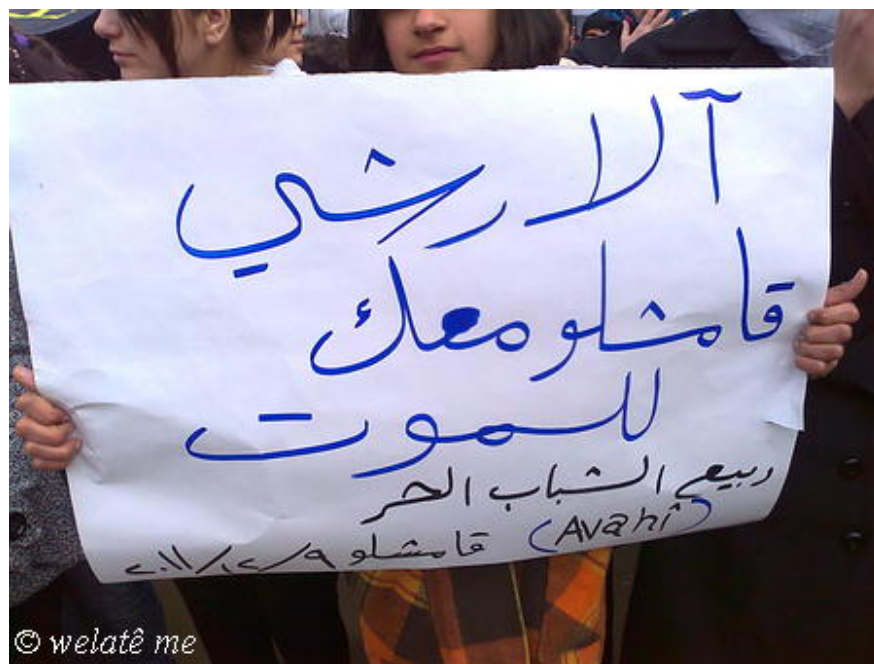 آلا رشي
قامشلو معك
للموت
ربيع الشباب الحر
(Avahî)
قامشلو ٩/١٢/٢٠١١
© welatê me